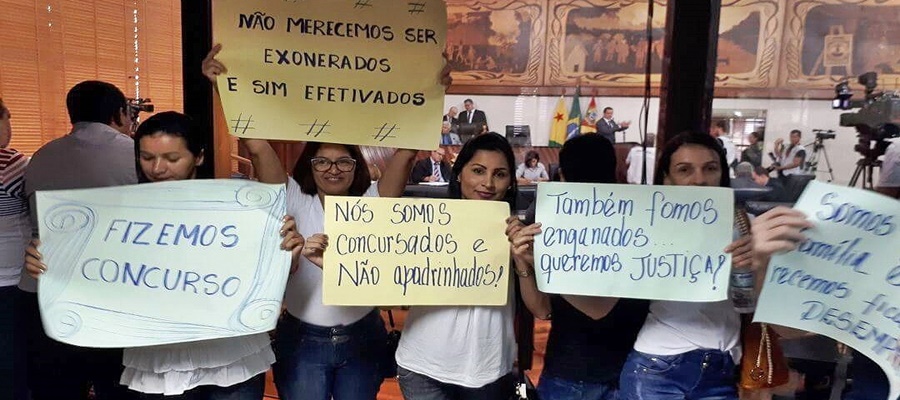 # # #
NÃO MERECEMOS SER
EXONERADOS
E SIM EFETIVADOS
# # #
FIZEMOS
CONCURSO
NÓS SOMOS
CONCURSADOS e
NÃO apadrinhados!
Também fomos
enganados...
queremos JUSTIÇA?
Somos
família e
recemos fica
DESEMP